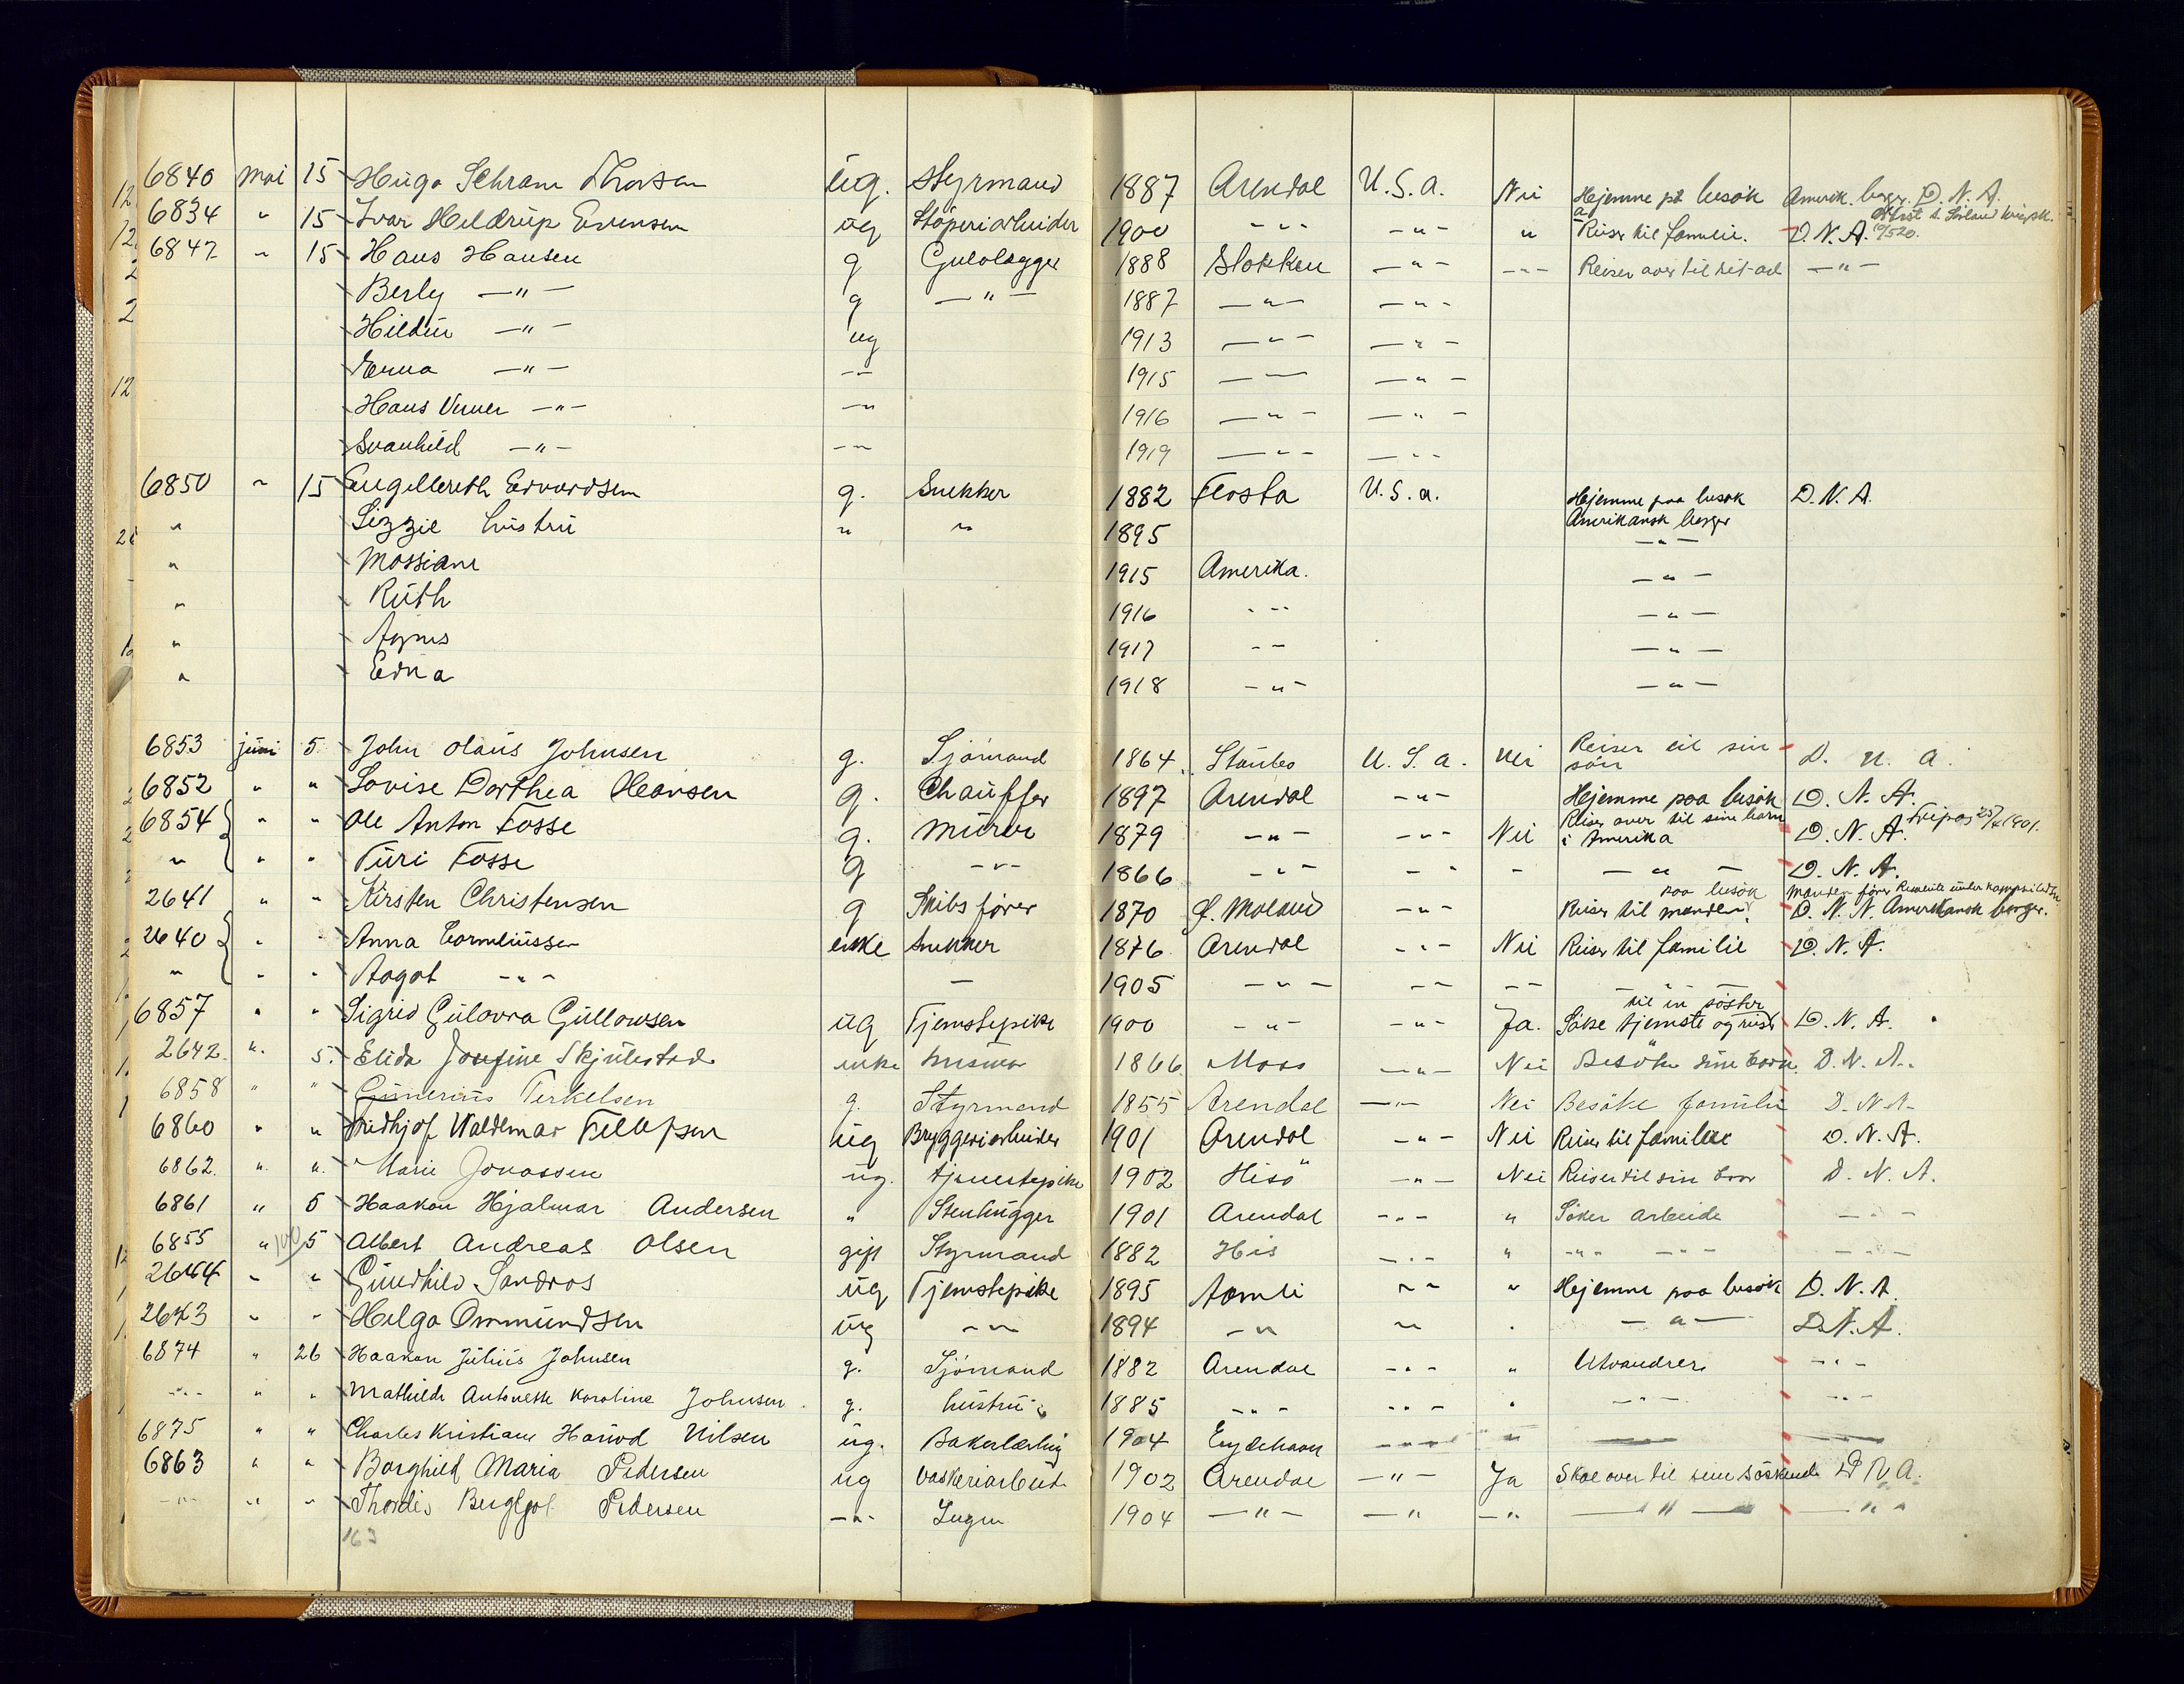 6840 Mai 15 Hugo Schram Thorsen ug. Styrmand 1887 Arendal U.S.A. Nei Hjemme på besök Amerik. borger. D.N.A.
6834 " 15 Ivar Heldrup Evensen ug Stöperiarbeider 1900 -"- -"- " Reiser til familie. D.N.A.
6847 " 15 Hans Hansen g Gulvlægger 1888 Stokken -"- -"- Reiser over til sit -"-
Berly -"- g -"- 1887 -"- -"-
Hildur -"- ug 1913 -"- -"-
Erna -"- -"- 1915 -"- -"-
Hans Verner -"- -"- 1916 -"- -"-
Svanhild -"- -"- 1919 -"- -"-
6850 " 15 Engelbreth Edvardsen g. Snekker 1882 Flosta U.S.A. Hjemme paa besøk D.N.A.
Amerikansk borger
" Lizzie hustru " " 1895 -"-
" Mossiane 1915 Amerika. -"-
" Ruth 1916 -"- -"-
" Agnes 1917 -"- -"-
" Edna 1918 -"- -"-
6853 juni 5 John Olaus Johnsen g. Sjömand 1864 U.S.A. Nei Reiser til sin sön D.N.A.
6852 " " Lovise Dorthea Hansen g. Chauffer 1897 Arendal -"- Hjemme paa besøk D.N.A.
6854 " " Ole Anton Fosse g. Murer 1879 -"- -"- Nei Reiser over til sine barn i Amerika D.N.A. Fripas 25/4 1901.
" " " Turi Fosse g -"- 1866 -"- -"- - -"- D.N.A.
2641 " " Kirsten Christensen g Skibsfører 1870 Ø. Moland -"- Reiser til manden paa besøk D.N.N. Amerikansk borger.
2640 " " Anna Corneliussen enke Snekker 1876 Arendal -"- Nei Reiser til familie D.N.A.
" " " Aagot -"- - 1905 -"- -"- -"- -"-
6857 " " Sigrid Gulovra Gullowsen ug Tjenestepike 1900 -"- -"- Ja. Söke tjeneste og reise til en söster D.N.A.
2642. " 5. Elida Josefine Skjulestad enke 1866 Moss -"- Nei Besöke sine barn. D.N.A.
6858 " " Gunerius Terkelsen g. Styrmand 1855 Arendal -"- Nei Besöke familie D.N.A.
6860 " " Fridhjof Waldemar Fellefsen ug Bryggeriarbeider 1901 Arendal -"- Nei Reiser til familie D.N.A.
6862. " " Marie Jonassen ug. tjenestepike 1902 Hisö -"- Nei Reiser til sin bror D.N.A.
6861 " 5 Haakon Hjalmar Andersen " Stenhugger 1901 Arendal -"- " Söker arbeide -"-
6855 " 5 Albert Andreas Olsen gift Styrmand 1882 His -"- " -"- -"- -"-
2644 " " Gundhild Sandros ug Tjenestepike 1895 Aamli -"- " Hjemme paa besøk D.N.A.
2643 " " Helga Ommundsen ug -"- 1894 -"- " " -"- D.N.A.
6874 " 26 Haakon Julius Johnsen g. Sjömand 1882 Arendal -"- " Utvandrer -"-
-"- " " Mathilde Antonette Karoline Johnsen g. hustru 1885 -"- -"- " -"- -"-
6875 " " Charles Kristian Harwod Nilsen ug. Bakerlærling 1904 Eydehavn -"- "
6863 " " Borghild Maria Pedersen ug Vaskeriarbeid. 1902 Arendal -"- Ja Skal over til sine söskende D.N.A.
-"- " " Thordis Bergljot Pedersen -"- Ingen 1904 -"- -"- -"- -"- -"-
163